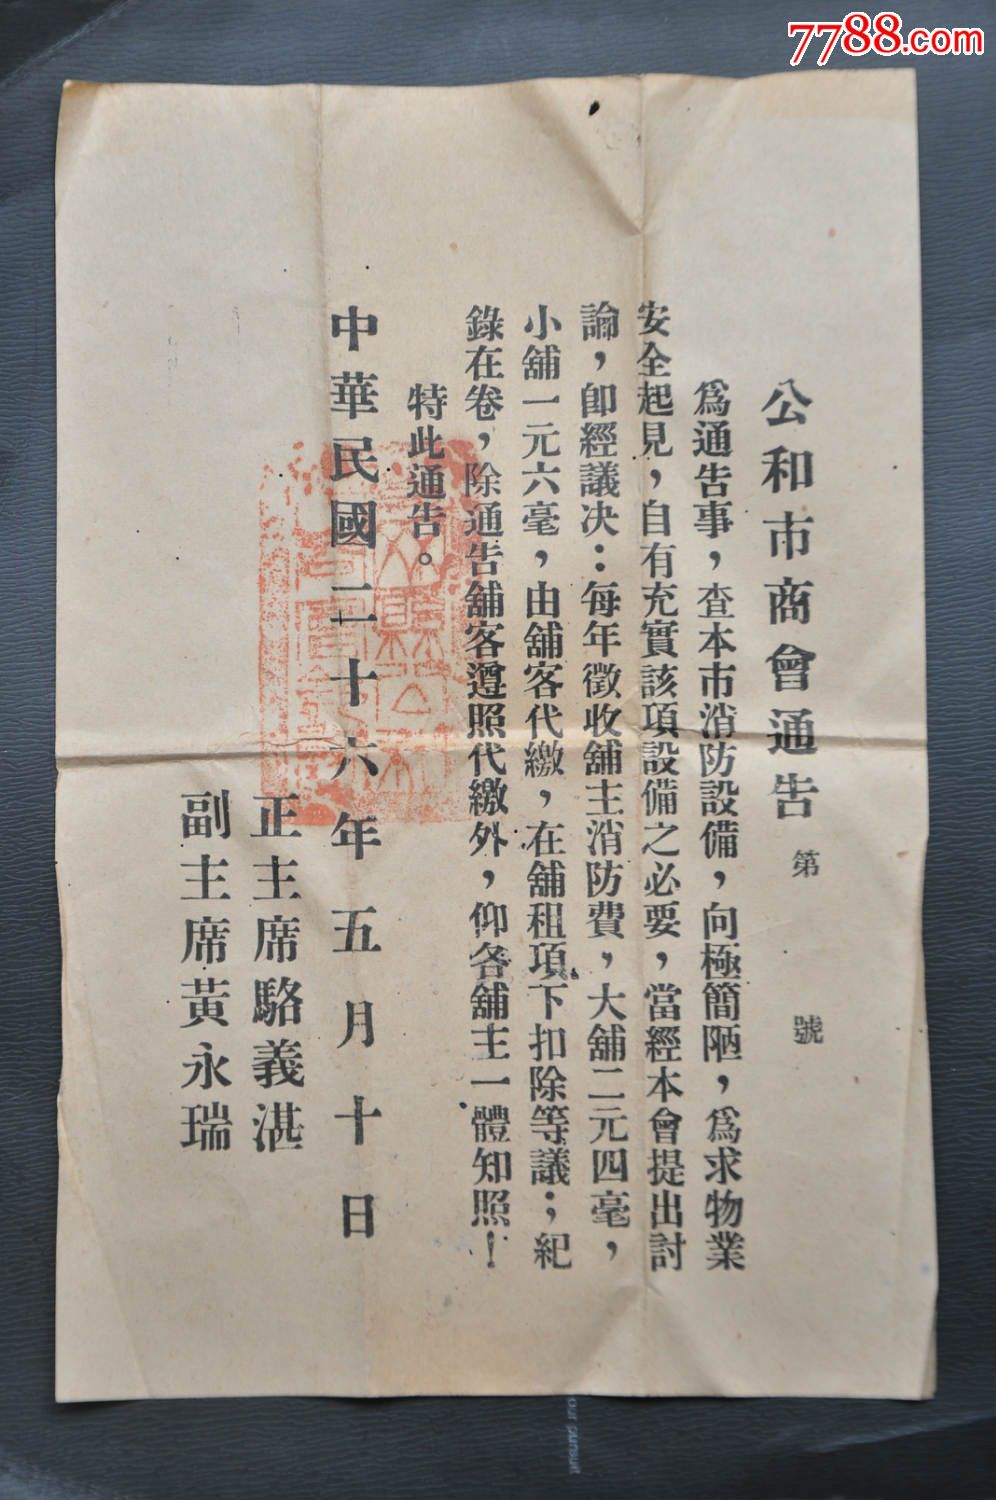 7788.com
公和市商會通告 第 號
爲通告事，查本市消防設備，向極簡陋，爲求物業
安全起見，自有充實該項設備之必要，當經本會提出討
論，卽經議决：每年徵收舖主消防費，大舖二元四毫，
小舖一元六毫，由舖客代繳，在舖租項下扣除等議；紀
錄在卷，除通告舖客遵照代繳外，仰各舖主一體知照！
特此通告。
中華民國二十六年五月十日
正主席駱義湛
副主席黃永瑞